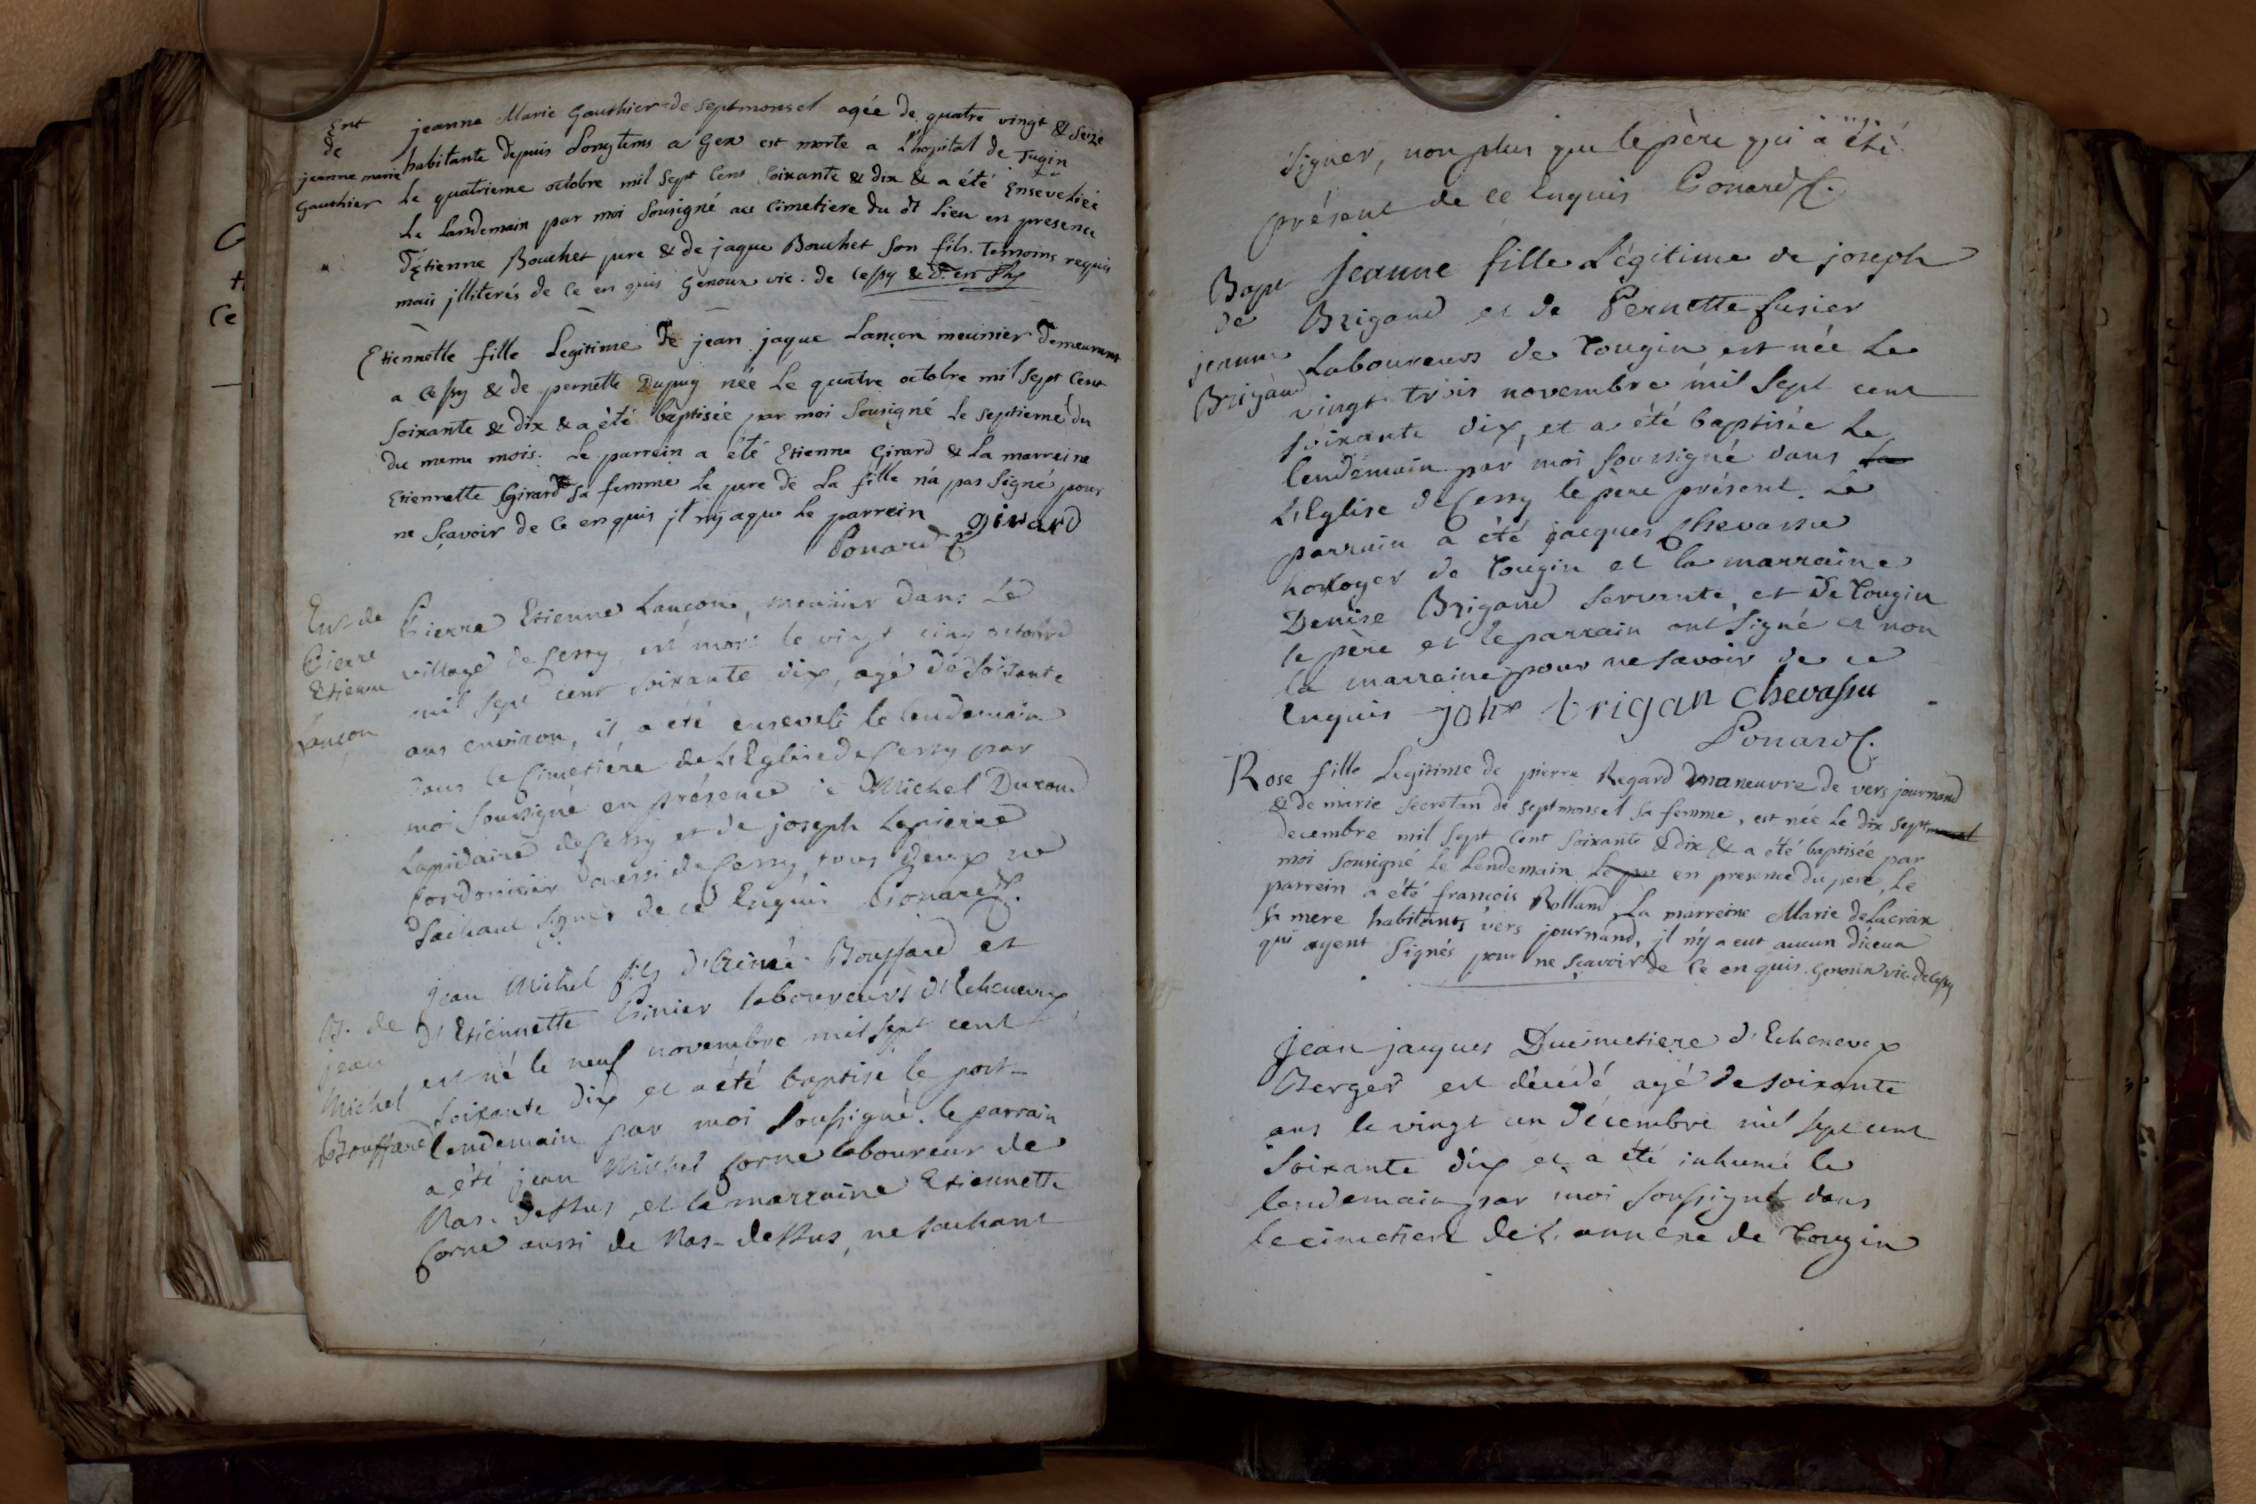 Ent
de
jeanne marie
Gauthier
jeanne Marie Gauthier de Septmonsel agée de quatre vingt & seize
habitante depuis Longtems a Gex est morte a L'hopital de Tugin
Le quatrieme octobre mil sept Cent soixante & dix & a été Ensevelie
Le Landemain par moi sousigné au Cimetiere du dt Lieu en presence
d'Etienne Bouchet pere & de jaque Bouchet son fils. Temoins requis
mais jlliterés de Ce en quis Genoux vic. de Cessy &
Etiennette fille Legitime de jean jaque Lançon meunier demeurant
a Cessy & de pernette Dupuy née Le quatre octobre mil sept Cent
soixante & dix & a été baptisée par moi sousigné Le septieme du
du meme mois. Le parrein a été Etienne Girard & La marreine
Etiennette Girard sa femme Le pere de La fille n'a pas signé pour
ne sçavoir de Ce en quis jl n'y a que Le parrein girard
Ponard C.
Ent de
Pierre
Etienne
Lançon
Pierre Etienne Lançon, meunier dans Le
village de Cessy, est mort le vingt cinq octobre
mil sept cent soixante dix, agé de soixante
ans environ, il a été enseveli le lendemain
dans le Cimetière de L'Eglise de Cessy par
moi soussigné en présence de Michel Duraud
Lapidaire de Cessy et de joseph Lapierre
Cordonnier aussi de Cessy, tous deux ne
sachant signer de ce Enquis Ponard C.
B. de
jean
Michel
Bouffard
jean Michel fils d' Bouffard et
d'Etiennette Pinier laboureurs d'Echenevex,
est né le neuf novembre mil sept cent
soixante dix et a été baptisé le post-
lendemain par moi soussigné. le parrain
a été jean Michel Corne laboureur de
Nas-dessus, et la marraine Etiennette
Corne aussi de Nas-dessus, ne sachant
signer, non plus que le père qui a été
présent de ce Enquis Ponard C.
Bapt
de
jeanne
Brigand
Jeanne fille Légitime de joseph
Brigand et de Pernette fusier
Laboureurs de Tougin est née Le
vingt trois novembre mil sept cent
soixante dix, et a été baptisée Le
lendemain par moi soussigné dans la
L'Eglise de Cessy le père présent. Le
parrain a été jacques Chevassu
horloger de Tougin et la marraine
Denise Brigand servante, et de Tougin
le père et le parrain ont signé et non
la marraine pour ne savoir de ce
Enquis brigan chevassu
Ponard C.
Rose fille Legitime de pierre Regard maneuvre de vers journand
& de marie Secretan de Septmonsel sa femme, est née Le dix sept
decembre mil sept Cent soixante & dix & a été baptisée par
moi sousigné Le Lendemain, Le per en presence du pere, Le
parrein a été françois Rolland La marreine Marie de Lacroix
sa mere habitants vers journand, jl n'y a eut aucun d'iceux
qui ayent signés pour ne sçavoir de Ce en quis. Genoux vic. de Cessy
jean jacques Ducimetiere d'Echenevex
Berger est décédé agé de soixante
ans le vingt un décembre mil sept cent
soixante dix et a été inhumé le
lendemain par moi soussigné dans
le cimetiere de L'annexe de Tougin